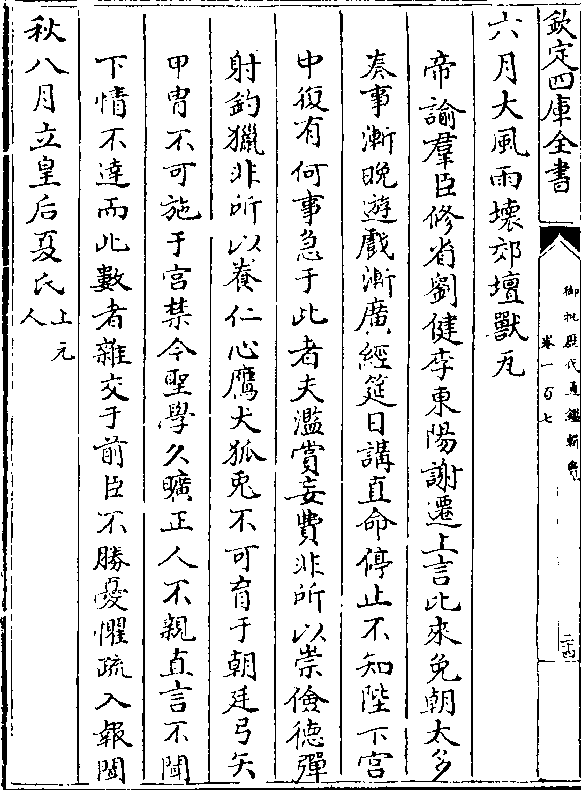 欽定四庫全書
御批歷代通鑑輯覽
卷一百七
二十四
六月大風雨壞郊壇獸瓦
帝諭羣臣修省劉健李東陽謝遷上言比來免朝太多
奏事漸晚遊戲漸廣經筵日講直命停止不知陛下宮
中復有何事急于此者夫濫賞妄費非所以崇儉德彈
射釣獵非所以養仁心鷹犬狐兎不可育于朝廷弓矢
甲冑不可施于宮禁今聖學久曠正人不親直言不聞
下情不達而此數者雜交于前臣不勝憂懼疏入報聞
秋八月立皇后夏氏上元
人